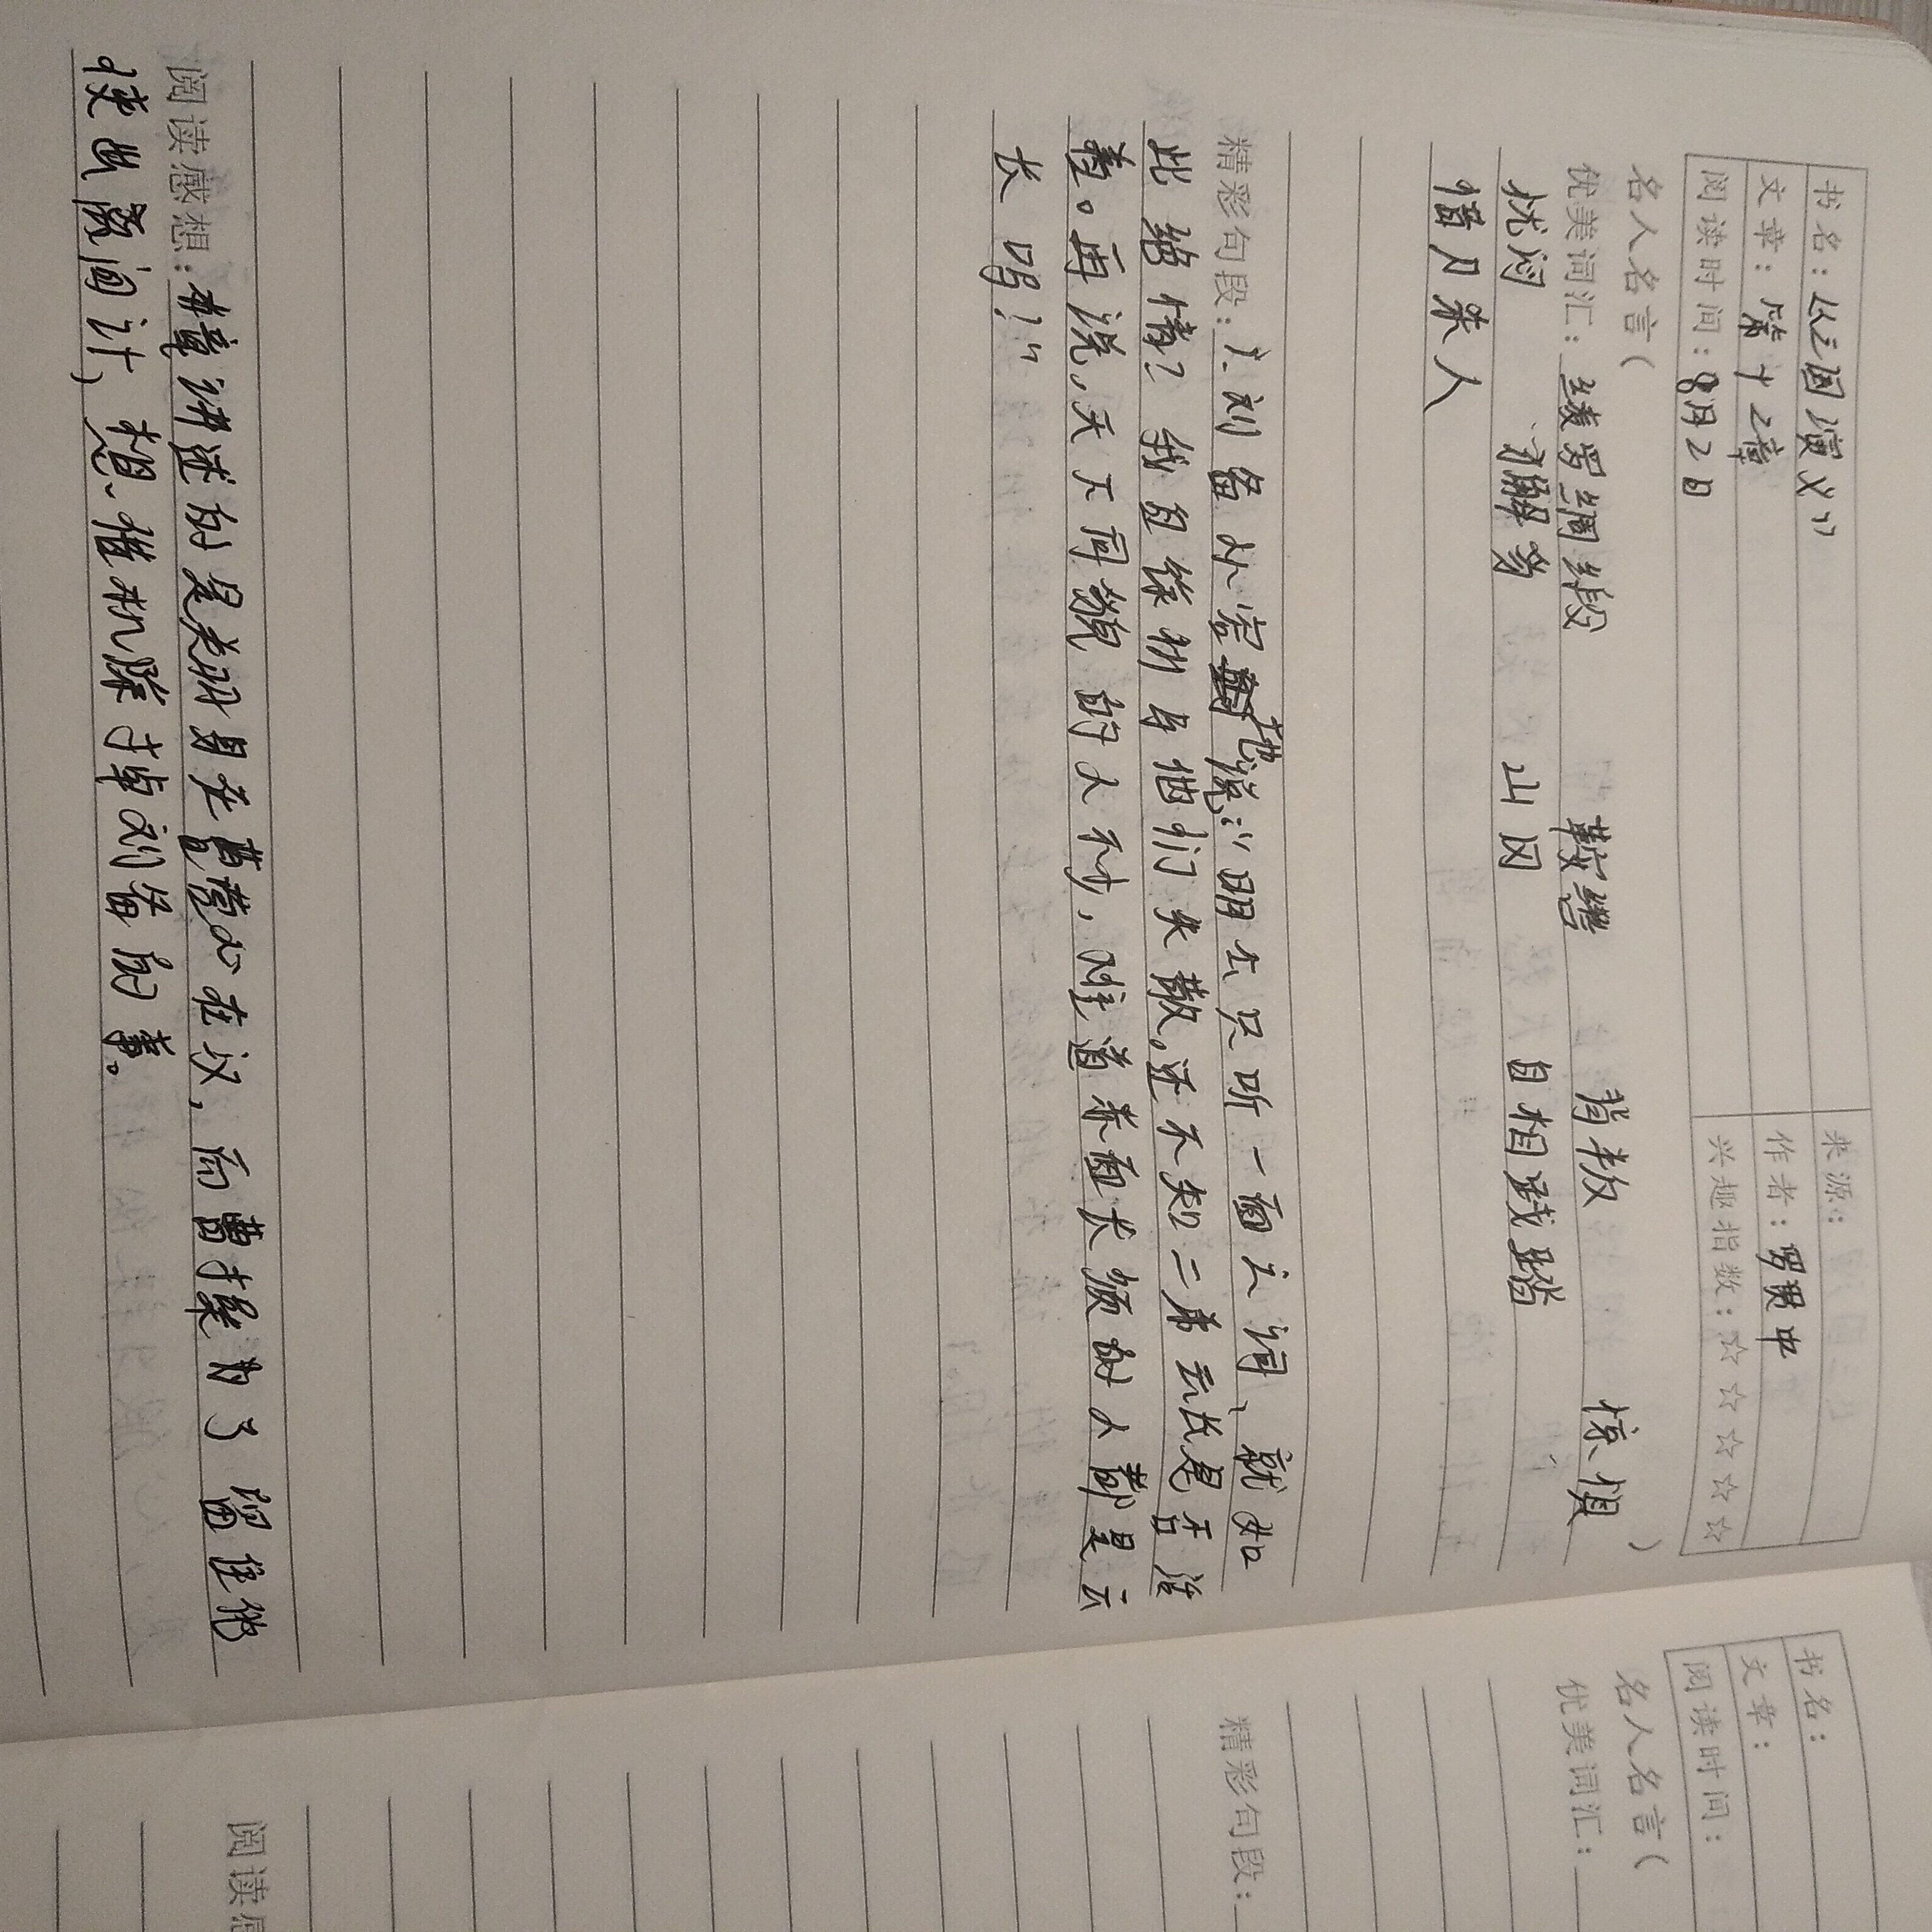 书名：《三国演义》
来源：
文章：第十二章
作者：罗贯中
阅读时间：8月2日
兴趣指数：☆☆☆☆☆
名人名言（ ）
优美词汇：绫罗绸缎 鞍辔 背叛 惊惧
忧闷 懈 山冈 自相践踏
借刀杀人
精彩句段：1.刘备小宓地说：“明公只听一面之词，就如
此绝情？我自徐州与他们失散，还不知二弟云长是否活
着。再说，天下同貌的人不少，难道赤面长须的人都是云
长吗！”
阅读感想：本章讲述的是关羽身在曹营心在汉，而曹操为了留住他
使出离间计，想借机除掉刘备的事。
书名：
文章：
阅读时间：
名人名言（
优美词汇：
精彩句段：
阅读感